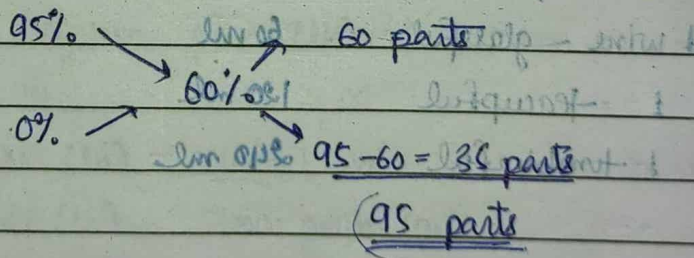 95%
60 parts
60%
0%
95 - 60 = 35 parts
95 parts